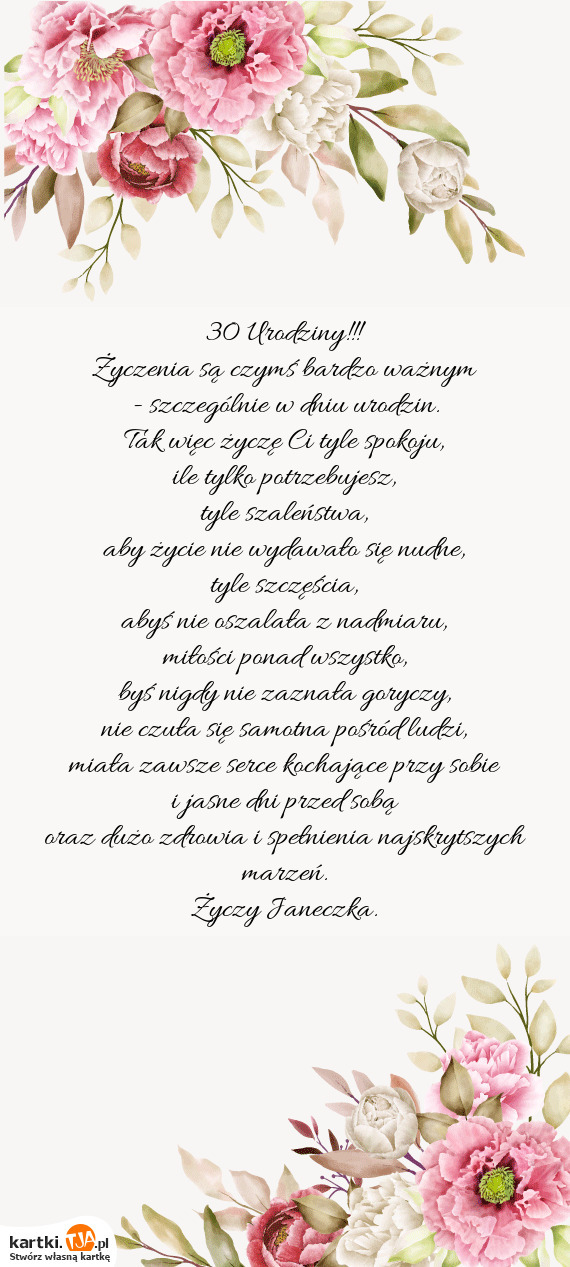 30 Urodziny!!!
Życzenia są czymś bardzo ważnym
- szczególnie w dniu urodzin.
Tak więc życzę Ci tyle spokoju,
ile tylko potrzebujesz,
tyle szaleństwa,
aby życie nie wydawało się nudne,
tyle szczęścia,
abyś nie oszalała z nadmiaru,
miłości ponad wszystko,
byś nigdy nie zaznała goryczy,
nie czuła się samotna pośród ludzi,
miała zawsze serce kochające przy sobie
i jasne dni przed sobą
oraz dużo zdrowia i spełnienia najskrytszych
marzeń.
Życzy Janeczka.
kartki.TJA.pl
Stwórz własną kartkę